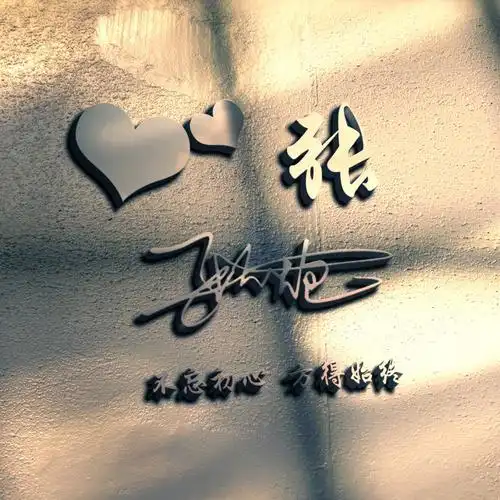 张
不忘初心 方得始终